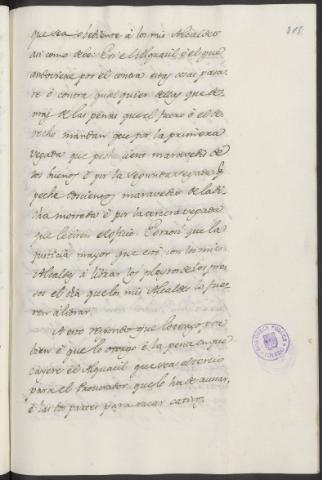 318.
que sea obediente à los mis Alcaldes
asi como debe: E si el Alguacil è el que
andoviere por el contra estas cosas pasa-
re ò contra qualquier dellas que de-
mas de las penas que el fuero ò el de-
recho mandan que por la primera
vegada que peche cient maravedis de
los buenos è por la segunda vegada q.
peche doscientos maravedis de la di-
cha moneda è por la tercera vegada
que le tiren el oficio. E otrosi que la
justicia mayor que esté con los mis
Alcaldes à librar los pleytos de los pre-
sos el dia que los mis Alcaldes los fue-
ren à librar.
A esto respondo que lo tengo por
bien è que lo otorgo è la pena en que
cayere el Alguacil que sea el tercio
para el Procurador que lo ha de acusar,
è las dos partes para sacar cativos.